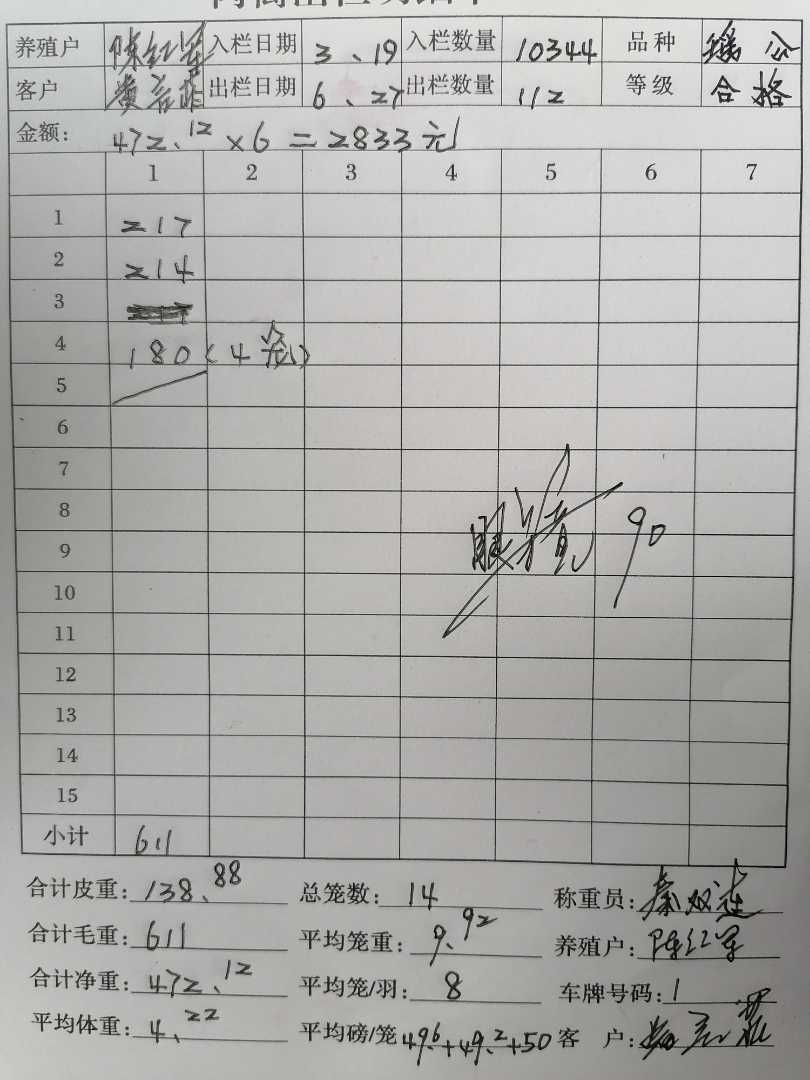 养殖户 陈红军 入栏日期 3、19 入栏数量 10344 品种 瑶公
客户 出栏日期 6、27 出栏数量 112 等级 合格
金额： 472.12 × 6 = 2833元
1 2 3 4 5 6 7
1 217
2 214
3
4 180(4笼)
5
6
7
8
9 90
10
11
12
13
14
15
小计 611
合计皮重： 138.88 总笼数： 14 称重员： 秦双连
合计毛重： 611 平均笼重： 9.92 养殖户： 陈红军
合计净重： 472.12 平均笼/羽： 8 车牌号码： 1
平均体重： 4.22 平均磅/笼 49.6+49.2+50 客 户：